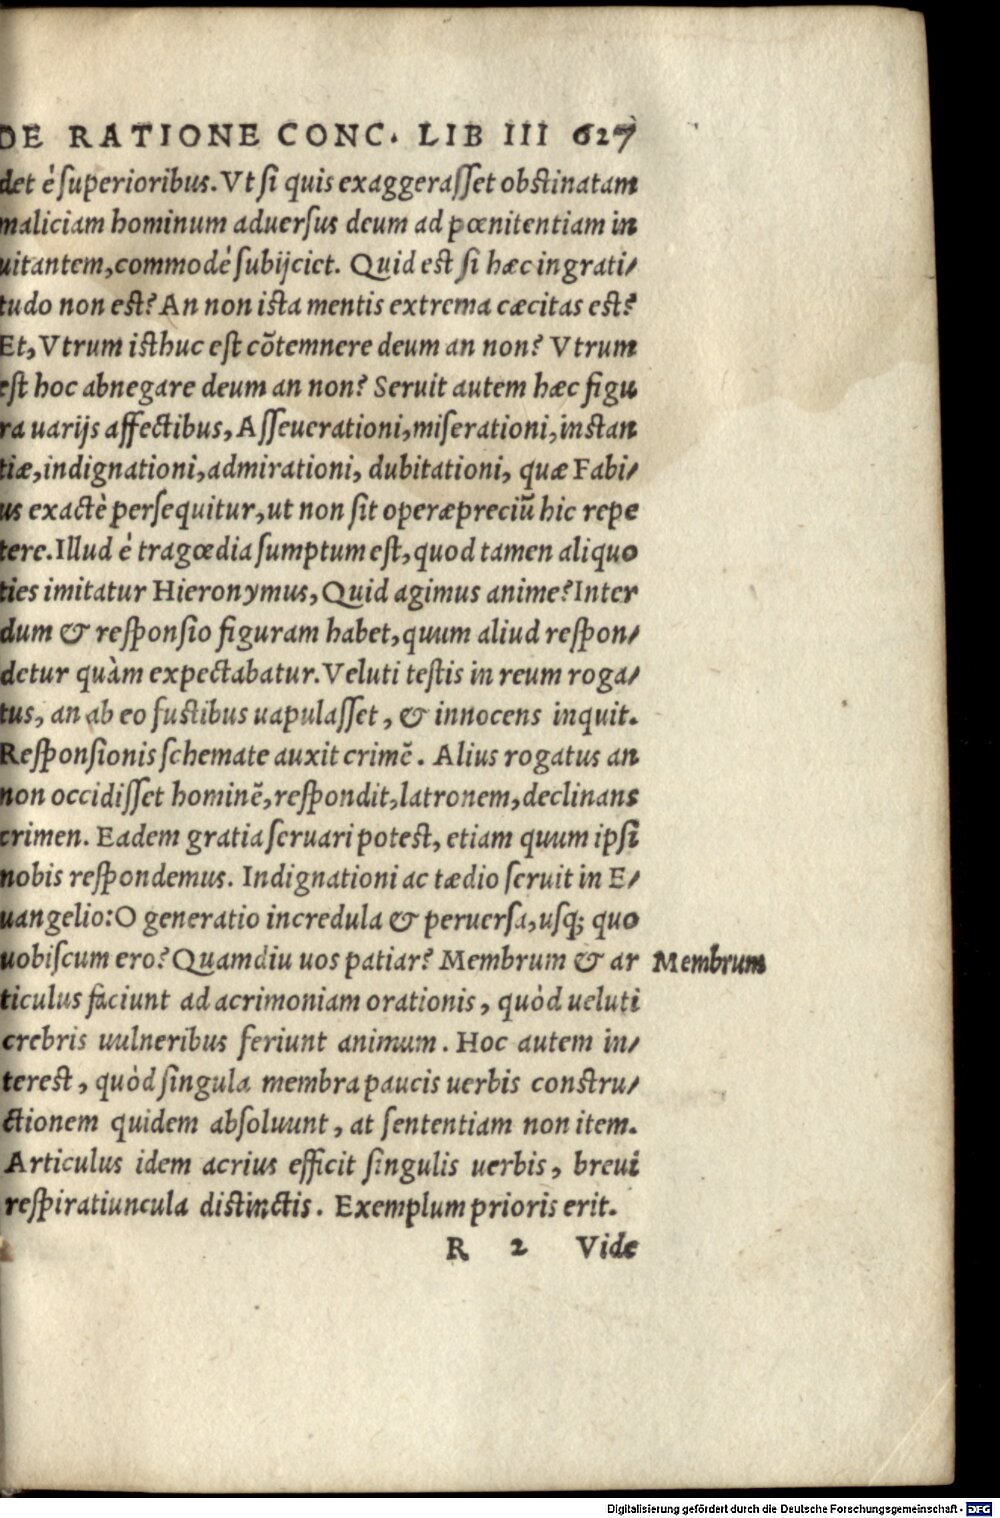 DE RATIONE CONC. LIB III 627
det è superioribus. Vt si quis exaggerasset obstinatam
maliciam hominum aduersus deum ad pœnitentiam in
uitantem, commodè subijciet. Quid est si hæc ingrati/
tudo non est? An non ista mentis extrema cæcitas est?
Et, Vtrum isthuc est cõtemnere deum an non? Vtrum
est hoc abnegare deum an non? Seruit autem hæc figu
ra uarijs affectibus, Asseuerationi, miserationi, instan
tiæ, indignationi, admirationi, dubitationi, quæ Fabi/
us exactè persequitur, ut non sit operæpreciũ hic repe
tere. Illud è tragœdia sumptum est, quod tamen aliquo
ties imitatur Hieronymus, Quid agimus anime? Inter
dum & responsio figuram habet, quum aliud respon/
detur quàm expectabatur. Veluti testis in reum roga/
tus, an ab eo fustibus uapulasset, & innocens inquit.
Responsionis schemate auxit crimẽ. Alius rogatus an
non occidisset hominẽ, respondit, latronem, declinans
crimen. Eadem gratia seruari potest, etiam quum ipsi
nobis respondemus. Indignationi ac tædio seruit in E/
uangelio: O generatio incredula & peruersa, usq; quo
uobiscum ero? Quamdiu uos patiar? Membrum & ar
Membrum
ticulus faciunt ad acrimoniam orationis, quòd ueluti
crebris uulneribus feriunt animum. Hoc autem in/
terest, quòd singula membra paucis uerbis constru/
ctionem quidem absoluunt, at sententiam non item.
Articulus idem acrius efficit singulis uerbis, breui
respiratiuncula distinctis. Exemplum prioris erit.
R 2 Vide
Digitalisierung gefördert durch die Deutsche Forschungsgemeinschaft - DFG